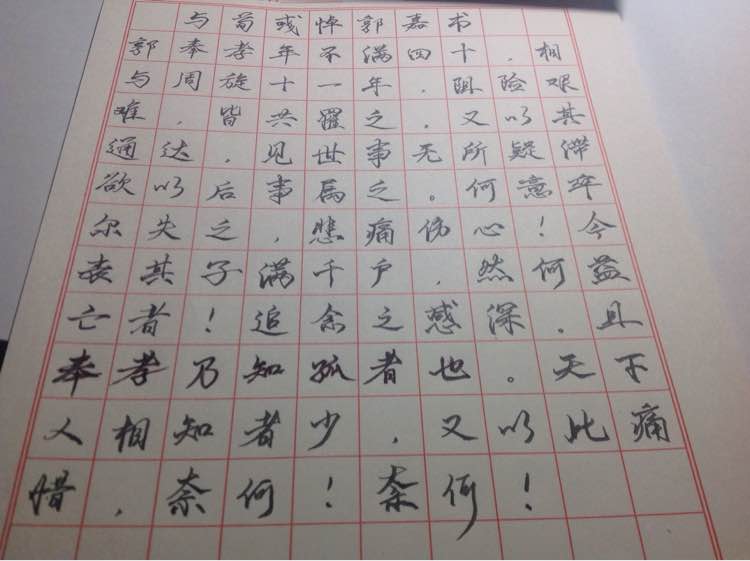 与荀彧悼郭嘉书
郭奉孝年不满四十,相
与周旋十一年,阻险艰
难,皆共罹之,又以其
通达,见世事无所疑滞
欲以后事属之。何意卒
尔失之,悲痛伤心!今
表其子满千户,然何益
亡者!追念之感深。且
奉孝乃知孤者也。天下
人相知者少,又以此痛
惜,奈何!奈何!